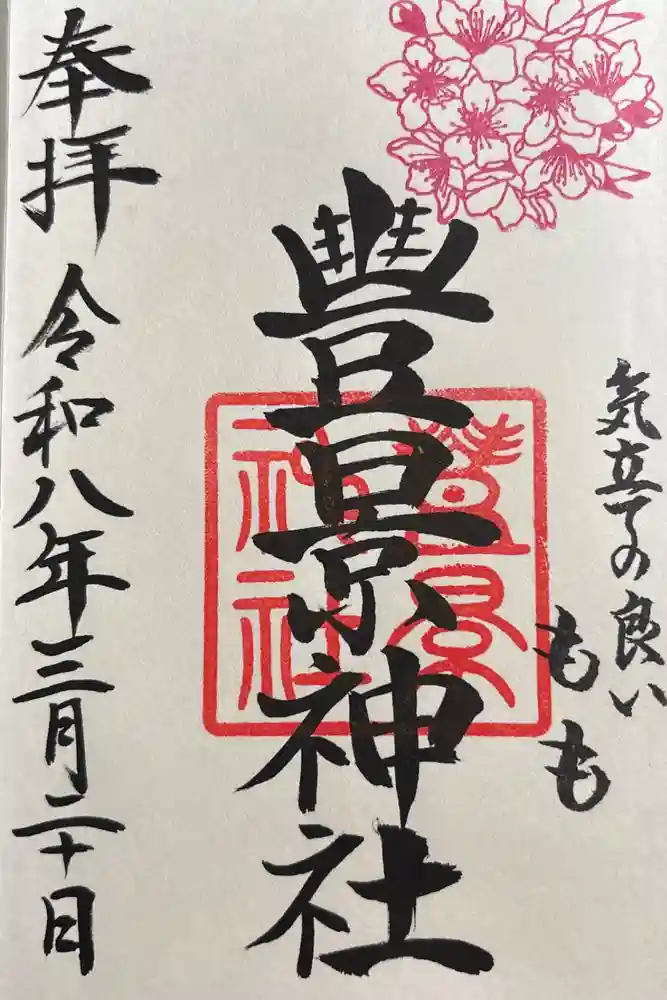 気立ての良い
もも
豐景神社
豊景神社
奉拝
令和八年三月二十日